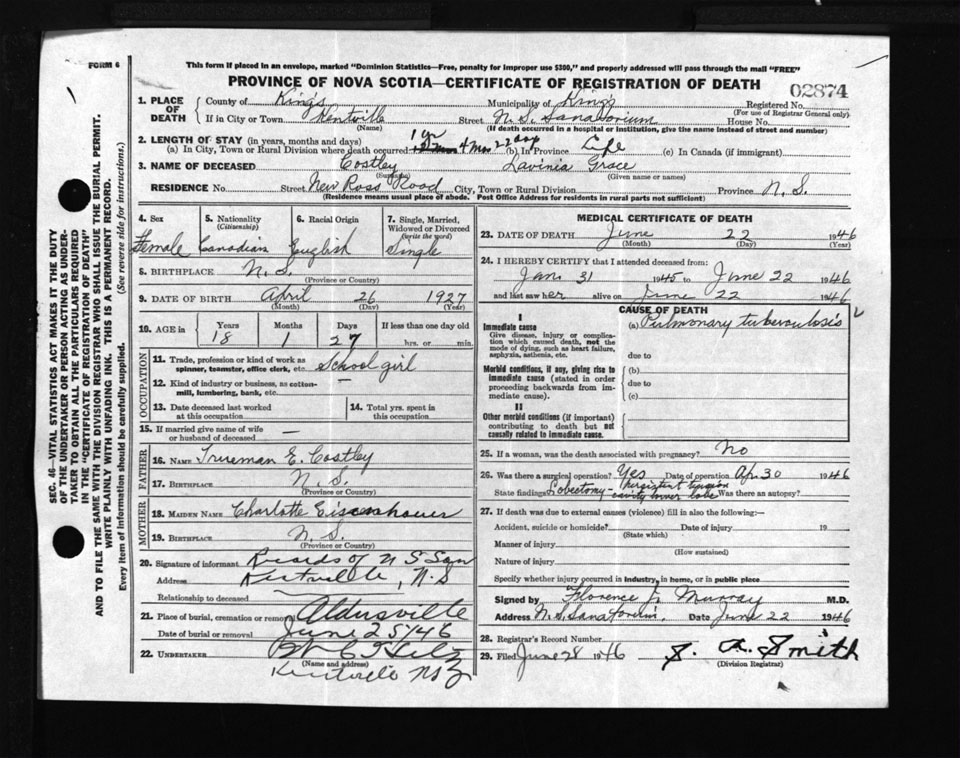 FORM 6
This form if placed in an envelope, marked "Dominion Statistics—Free, penalty for improper use $300," and properly addressed will pass through the mail "FREE"
PROVINCE OF NOVA SCOTIA—CERTIFICATE OF REGISTRATION OF DEATH
02874
1. PLACE OF DEATH
County of Kings Municipality of Kings Registered No.
(For use of Registrar General only)
If in City or Town Kentville Street N.S. Sanatorium House No.
(Name) (If death occurred in a hospital or institution, give the name instead of street and number)
2. LENGTH OF STAY (in years, months and days)
(a) In City, Town or Rural Division where death occurred 1 yr 4 mos 22 days (b) In Province Life (c) In Canada (if immigrant)
3. NAME OF DECEASED Costley Lavinia Grace
(Surname) (Given name or names)
RESIDENCE No. Street New Ross Road City, Town or Rural Division Province N.S.
(Residence means usual place of abode. Post Office Address for residents in rural parts not sufficient)
4. Sex
Female
5. Nationality (Citizenship)
Canadian
6. Racial Origin
English
7. Single, Married, Widowed or Divorced (write the word)
Single
8. BIRTHPLACE N.S.
(Province or Country)
9. DATE OF BIRTH April 26 1927
(Month) (Day) (Year)
10. AGE in Years Months Days If less than one day old
18 1 27 hrs. or min.
OCCUPATION
11. Trade, profession or kind of work as spinner, teamster, office clerk, etc. School girl
12. Kind of industry or business, as cotton-mill, lumbering, bank, etc. —
13. Date deceased last worked at this occupation
14. Total yrs. spent in this occupation
15. If married give name of wife or husband of deceased —
FATHER
16. NAME Trueman E. Costley
17. BIRTHPLACE N.S.
(Province or Country)
MOTHER
18. MAIDEN NAME Charlotte Eisenhauer
19. BIRTHPLACE N.S.
(Province or Country)
20. Signature of informant Records of N S San
Address Kentville, N.S
Relationship to deceased
21. Place of burial, cremation or removal Aldersville
Date of burial or removal June 25/46
22. UNDERTAKER
(Name and address)
Kentville NS
MEDICAL CERTIFICATE OF DEATH
23. DATE OF DEATH June 22 1946
(Month) (Day) (Year)
24. I HEREBY CERTIFY that I attended deceased from:
Jan 31 1945 to June 22 1946
and last saw her alive on June 22 1946
CAUSE OF DEATH
I
Immediate cause
Give disease, injury or complication which caused death, not the mode of dying, such as heart failure, asphyxia, asthenia, etc.
(a) Pulmonary tuberculosis
due to
Morbid conditions, if any, giving rise to immediate cause (stated in order proceeding backwards from immediate cause).
(b)
due to
(c)
II
Other morbid conditions (if important) contributing to death but not causally related to immediate cause.
25. If a woman, was the death associated with pregnancy? No
26. Was there a surgical operation? Yes Date of operation Apr 30 1946
State findings Lobectomy - Persistent tension cavity lower lobe Was there an autopsy?
27. If death was due to external causes (violence) fill in also the following:—
Accident, suicide or homicide? Date of injury 19
(State which)
Manner of injury
(How sustained)
Nature of injury
Specify whether injury occurred in industry, in home, or in public place
Signed by Florence J. Murray M.D.
Address N.S. Sanatorium Date June 22 1946
28. Registrar's Record Number
29. Filed June 28 1946 A. Smith
(Division Registrar)
SEC. 46—VITAL STATISTICS ACT MAKES IT THE DUTY
OF THE UNDERTAKER OR PERSON ACTING AS UNDER-
TAKER TO OBTAIN ALL THE PARTICULARS REQUIRED
IN THE "CERTIFICATE OF REGISTRATION OF DEATH"
AND TO FILE THE SAME WITH THE DIVISION REGISTRAR WHO SHALL ISSUE THE BURIAL PERMIT.
WRITE PLAINLY WITH UNFADING INK. THIS IS A PERMANENT RECORD.
Every item of information should be carefully supplied. (See reverse side for instructions.)